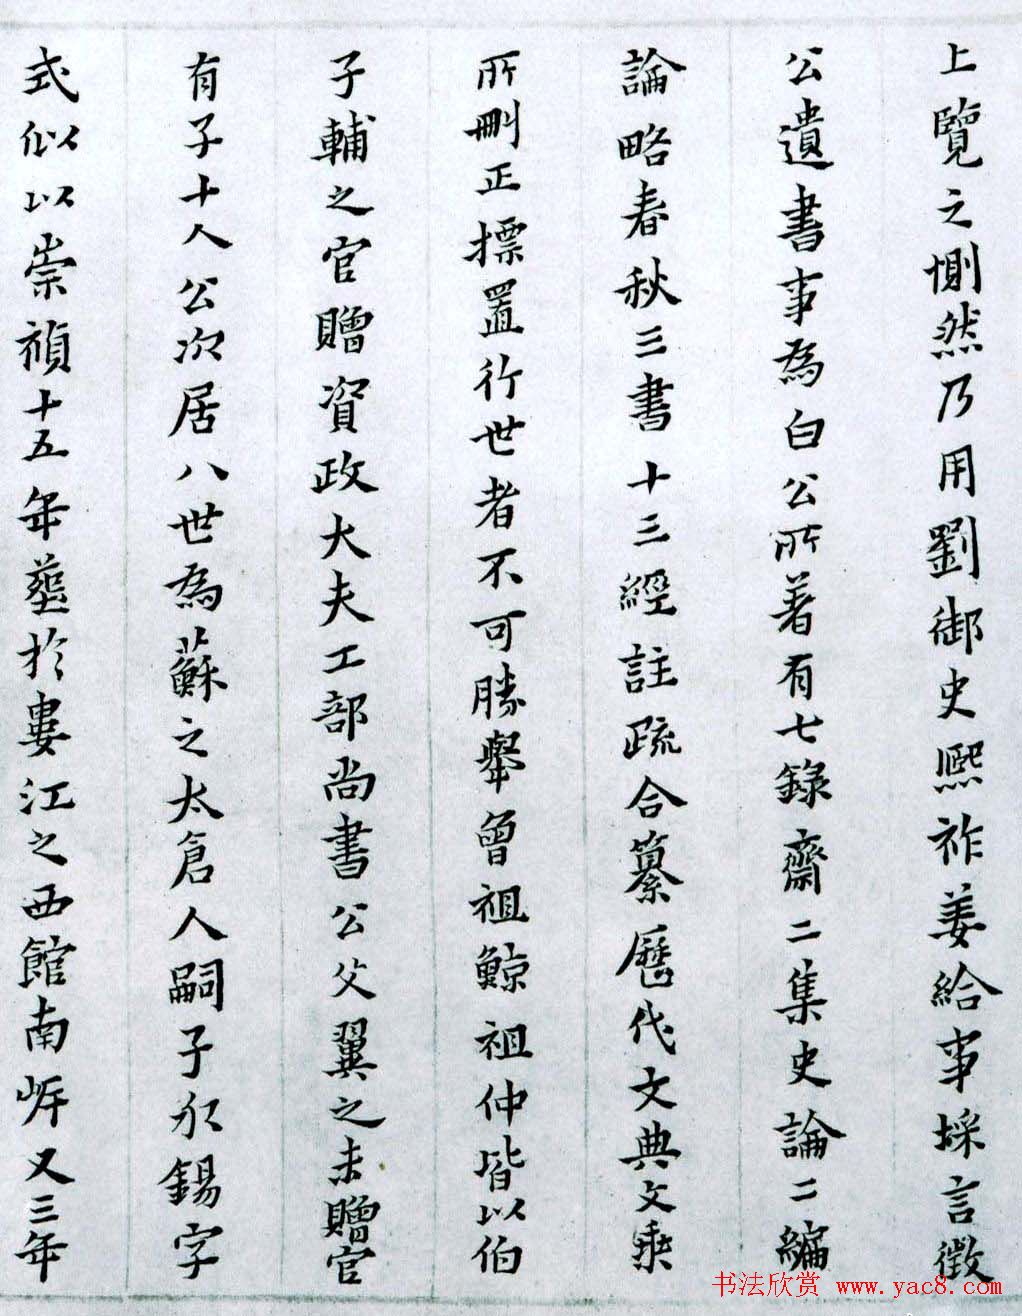 上覽之惻然乃用劉御史熙祚姜給事埰言徵
公遺書事為白公所著有七錄齋二集史論二編
論略春秋三書十三經註疏合纂歷代文典文乘
所刪正標置行世者不可勝舉曾祖鯨祖仲皆以伯
子輔之官贈資政大夫工部尚書公父翼之未贈官
有子十人公次居八世為蘇之太倉人嗣子永錫字
式似以崇禎十五年葬於婁江之西館南岸又三年
书法欣赏 www.yac8.com